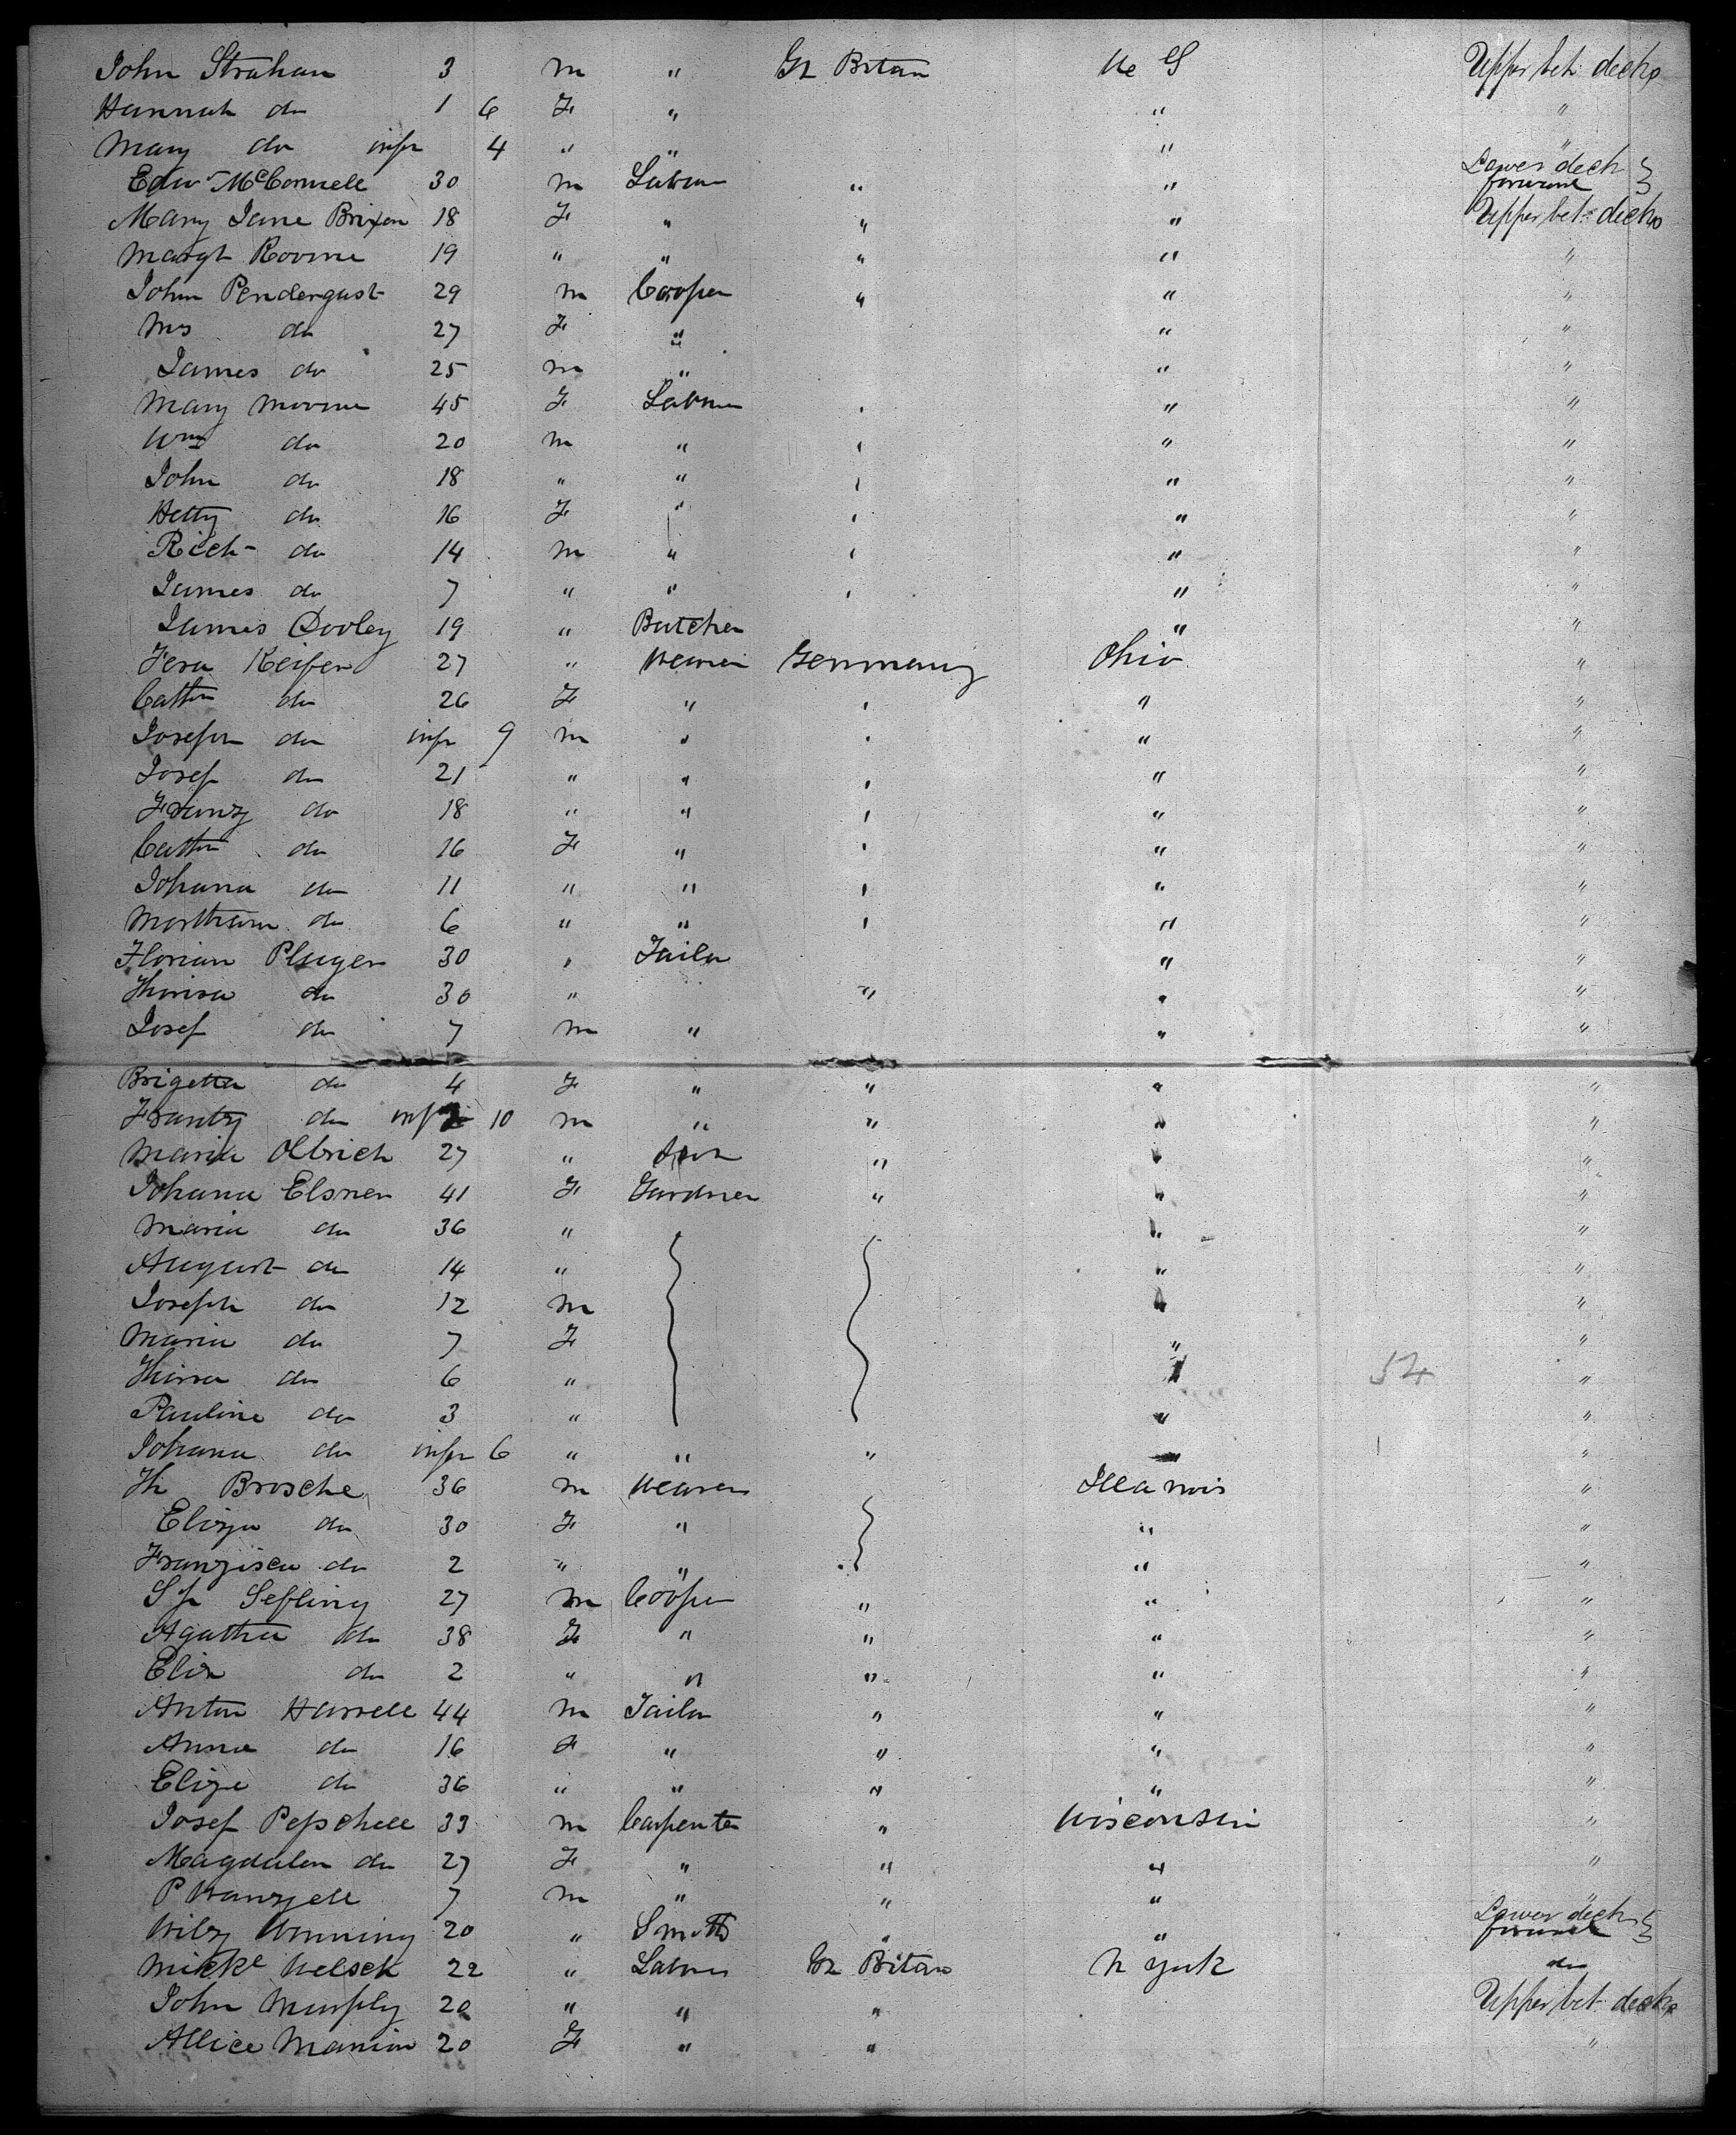 John Strahan 3 m " Gr Bitan U S Upper bet decks
Hannah do 1 6 F " " "
Mary do infn 4 " " " "
Edwd McConnell 30 m Labour " " Lower deck forward
Mary Jane Brixen 18 F " " " Upper bet decks
Margt Roome 19 " " " " "
John Pendergast 29 m Cooper " " "
Mrs do 27 F " " "
James do 25 m " " "
Mary Moome 45 F Labour " " "
Wm do 20 m " " " "
John do 18 " " " " "
Hetty do 16 F " " " "
Rich do 14 m " " " "
James do 7 " " " " "
James Dooley 19 " Butcher " "
Fera Keifer 27 " Weaver Germany Ohio "
Cathn do 26 F " " " "
Joseph do infn 9 m " " " "
Josef do 21 " " " " "
Franz do 18 " " " " "
Cathn do 16 F " " " "
Johana do 11 " " " " "
do 6 " " " " "
Florian Pluger 30 " Tailor " "
Thirisa do 30 " " " "
Josef do 7 m " " "
Brigetta do 4 F " " " "
Frantz do inf 10 m " " " "
Maria Olbrich 27 " " " "
Johana Elsner 41 F Gardner " " "
Maria do 36 " " "
August do 14 " " "
Joseph do 12 m " "
Maria do 7 F " "
Thirsa do 6 " " 54 "
Pauline do 3 " " "
Johana do infn 6 " " " " "
Th Brosche 36 m Weaver Illanois "
Eliza do 30 F " " "
Franzisca do 2 " " " "
Sefling 27 m Cooper " " "
Agatha do 38 F " " " "
Eliz do 2 " " " " "
Anton Harrell 44 m Tailor " " "
Anna do 16 F " " " "
Eliza do 36 " " " " "
Josef Peschell 33 m Carpenter " Wisconsin "
Magdalen do 27 F " " " "
P Wanzell 7 m " " " "
Wilz Wnning 20 " Smith " " Lower deck forward
Mickl Welsch 22 " Labour Gr Bitan N York do
John Murphy 20 " " " Upper bet decks
Allice Manion 20 F " " "